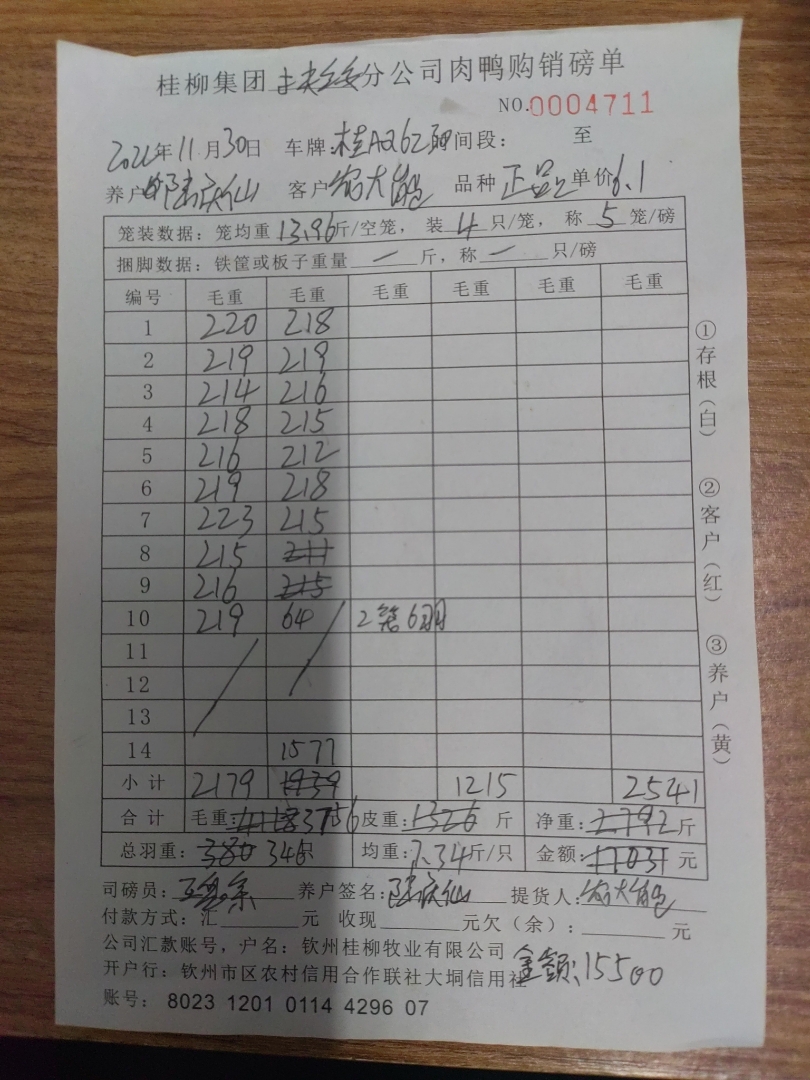 桂柳集团 分公司肉鸭购销磅单
NO.0004711
2022年11月30日 车牌:桂A 时间段: 至
养户: 陆庆仙 客户 大 品种 正品 单价6.1
笼装数据: 笼均重 13.96 斤/空笼, 装 4 只/笼, 称 5 笼/磅
捆脚数据: 铁筐或板子重量 一 斤, 称 一 只/磅
编号 毛重 毛重 毛重 毛重 毛重 毛重
1 220 218
2 219 219
3 214 216
4 218 215
5 216 212
6 219 218
7 223 215
8 215 211
9 216 215
10 219 64 2笼6只
11
12
13
14 1577
小计 2179 1939 1215 2541
合计 毛重: 4118 3756 皮重: 1326 斤 净重: 2792 斤
总羽重: 380 346 只 均重: 7.34 斤/只 金额: 17031 元
司磅员: 养户签名: 陆庆仙 提货人:
付款方式: 汇 元 收现 元 欠(余): 元
公司汇款账号, 户名: 钦州桂柳牧业有限公司
金额: 15500
开户行: 钦州市区农村信用合作联社大垌信用社
账号: 8023 1201 0114 4296 07
①存根(白) ②客户(红) ③养户(黄)